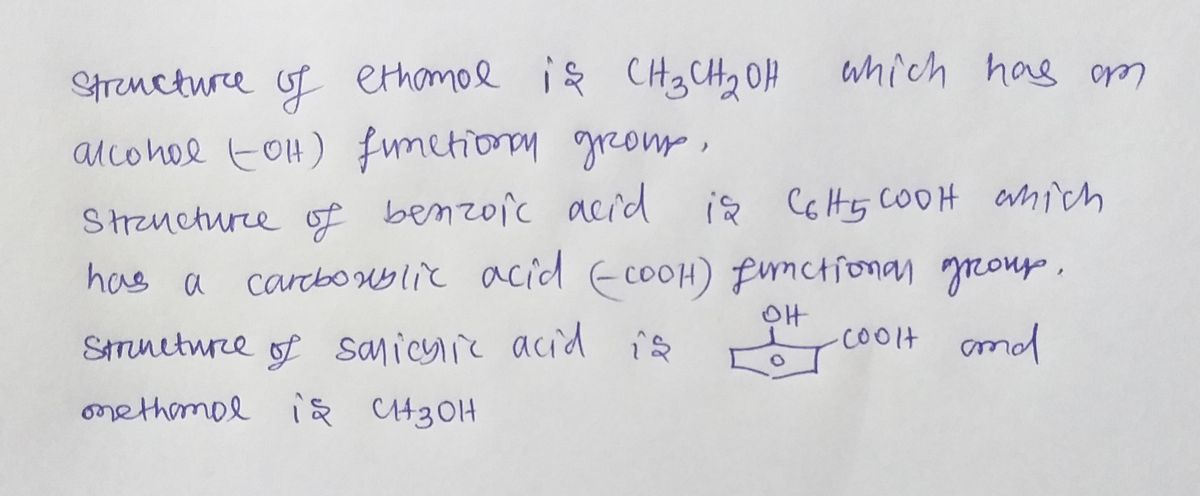 Structure of ethanol is CH3CH2OH which has an
alcohol (-OH) functional group.
Structure of benzoic acid is C6H5COOH which
has a carboxylic acid (-COOH) functional group.
OH
Structure of salicylic acid is -COOH and
methanol is CH3OH